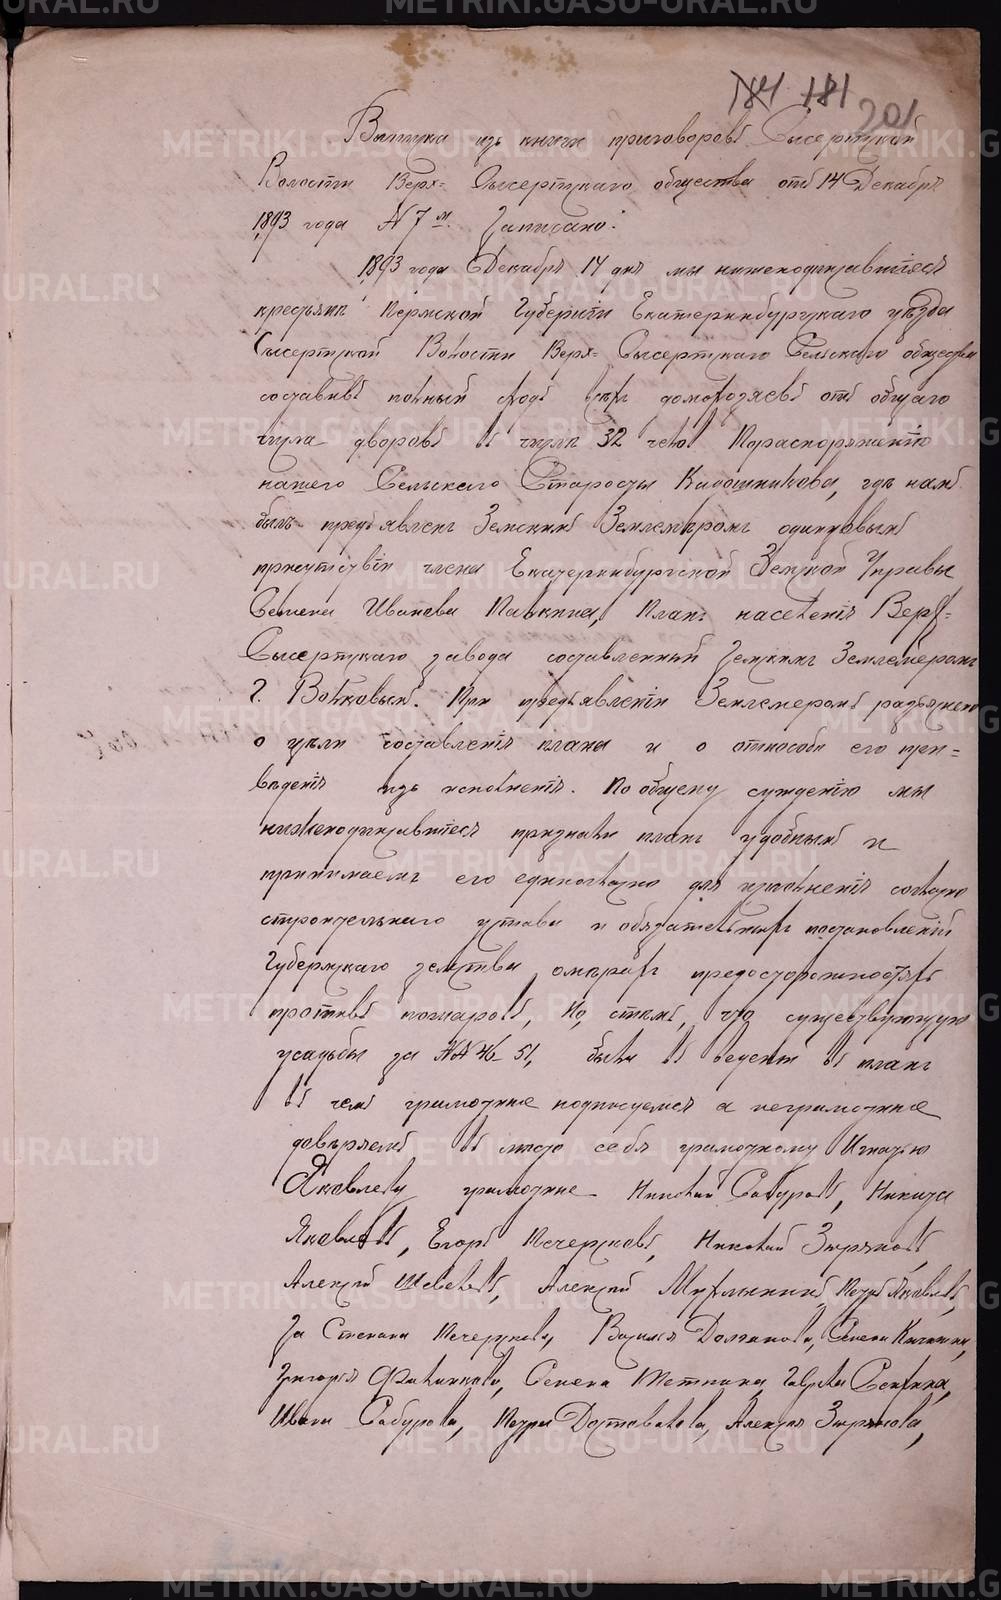 184 181
201
Выписка изъ книги приговоровъ Сысертской
Волости Верх= Сысертскаго общества отъ 14 Декабря
1893 года № 7 м. Записано:
1893 года Декабря 14 дня мы нижеподписавшiеся
крестьяне Пермской Губернiи Екатеринбургскаго уѣзда
Сысертской Волости Верх= Сысертскаго Сельскаго общества
составивъ полный сходъ домохозяевъ отъ общаго
числа дворовъ въ числѣ 32 чел. По распоряженiю
нашего Сельскаго Старосты где намъ
былъ предъявленъ Земскимъ Землемѣромъ
присутствiи члена Екатеринбургской Земской Управы
Семена Иванова Палкина, Планъ населенiя Верх=
Сысертскаго завода составленный Земскимъ Землемеромъ
Г. Волковымъ. При предъявленiи Землемеромъ разъяснено
о цѣли составленiя плана и о способе его при=
веденiя изъ исполненiя. По общему сужденiю мы
нижеподписавшiеся признали планъ удобнымъ и
принимаемъ его единогласно для исполненiя согласно
строительнаго устава и обязательныхъ постановленiй
Губернскаго земства о мѣрахъ предосторожностяхъ
противъ пожаровъ, Но, стемъ, что существующую
усадьбы за №№ 46 51, были въ ведены въ планъ
въ чемъ грамотные подписуемся а неграмотные
довѣряемъ въ место себя грамотному Игнатью
Яковлеву грамотные Николай Сабуровъ, Никита
Яковлевъ, Егоръ Печерсковъ, Николай Зыряновъ,
Алексѣй Шевелевъ, Алексѣй Петръ Яковлевъ,
За Степана Печерскова, Василiя Долганова, Семена Кичигина,
Григорiя Семена Гаврила Секачина,
Ивана Сабурова, Петра Доставалова, Алексѣя Зырянова,